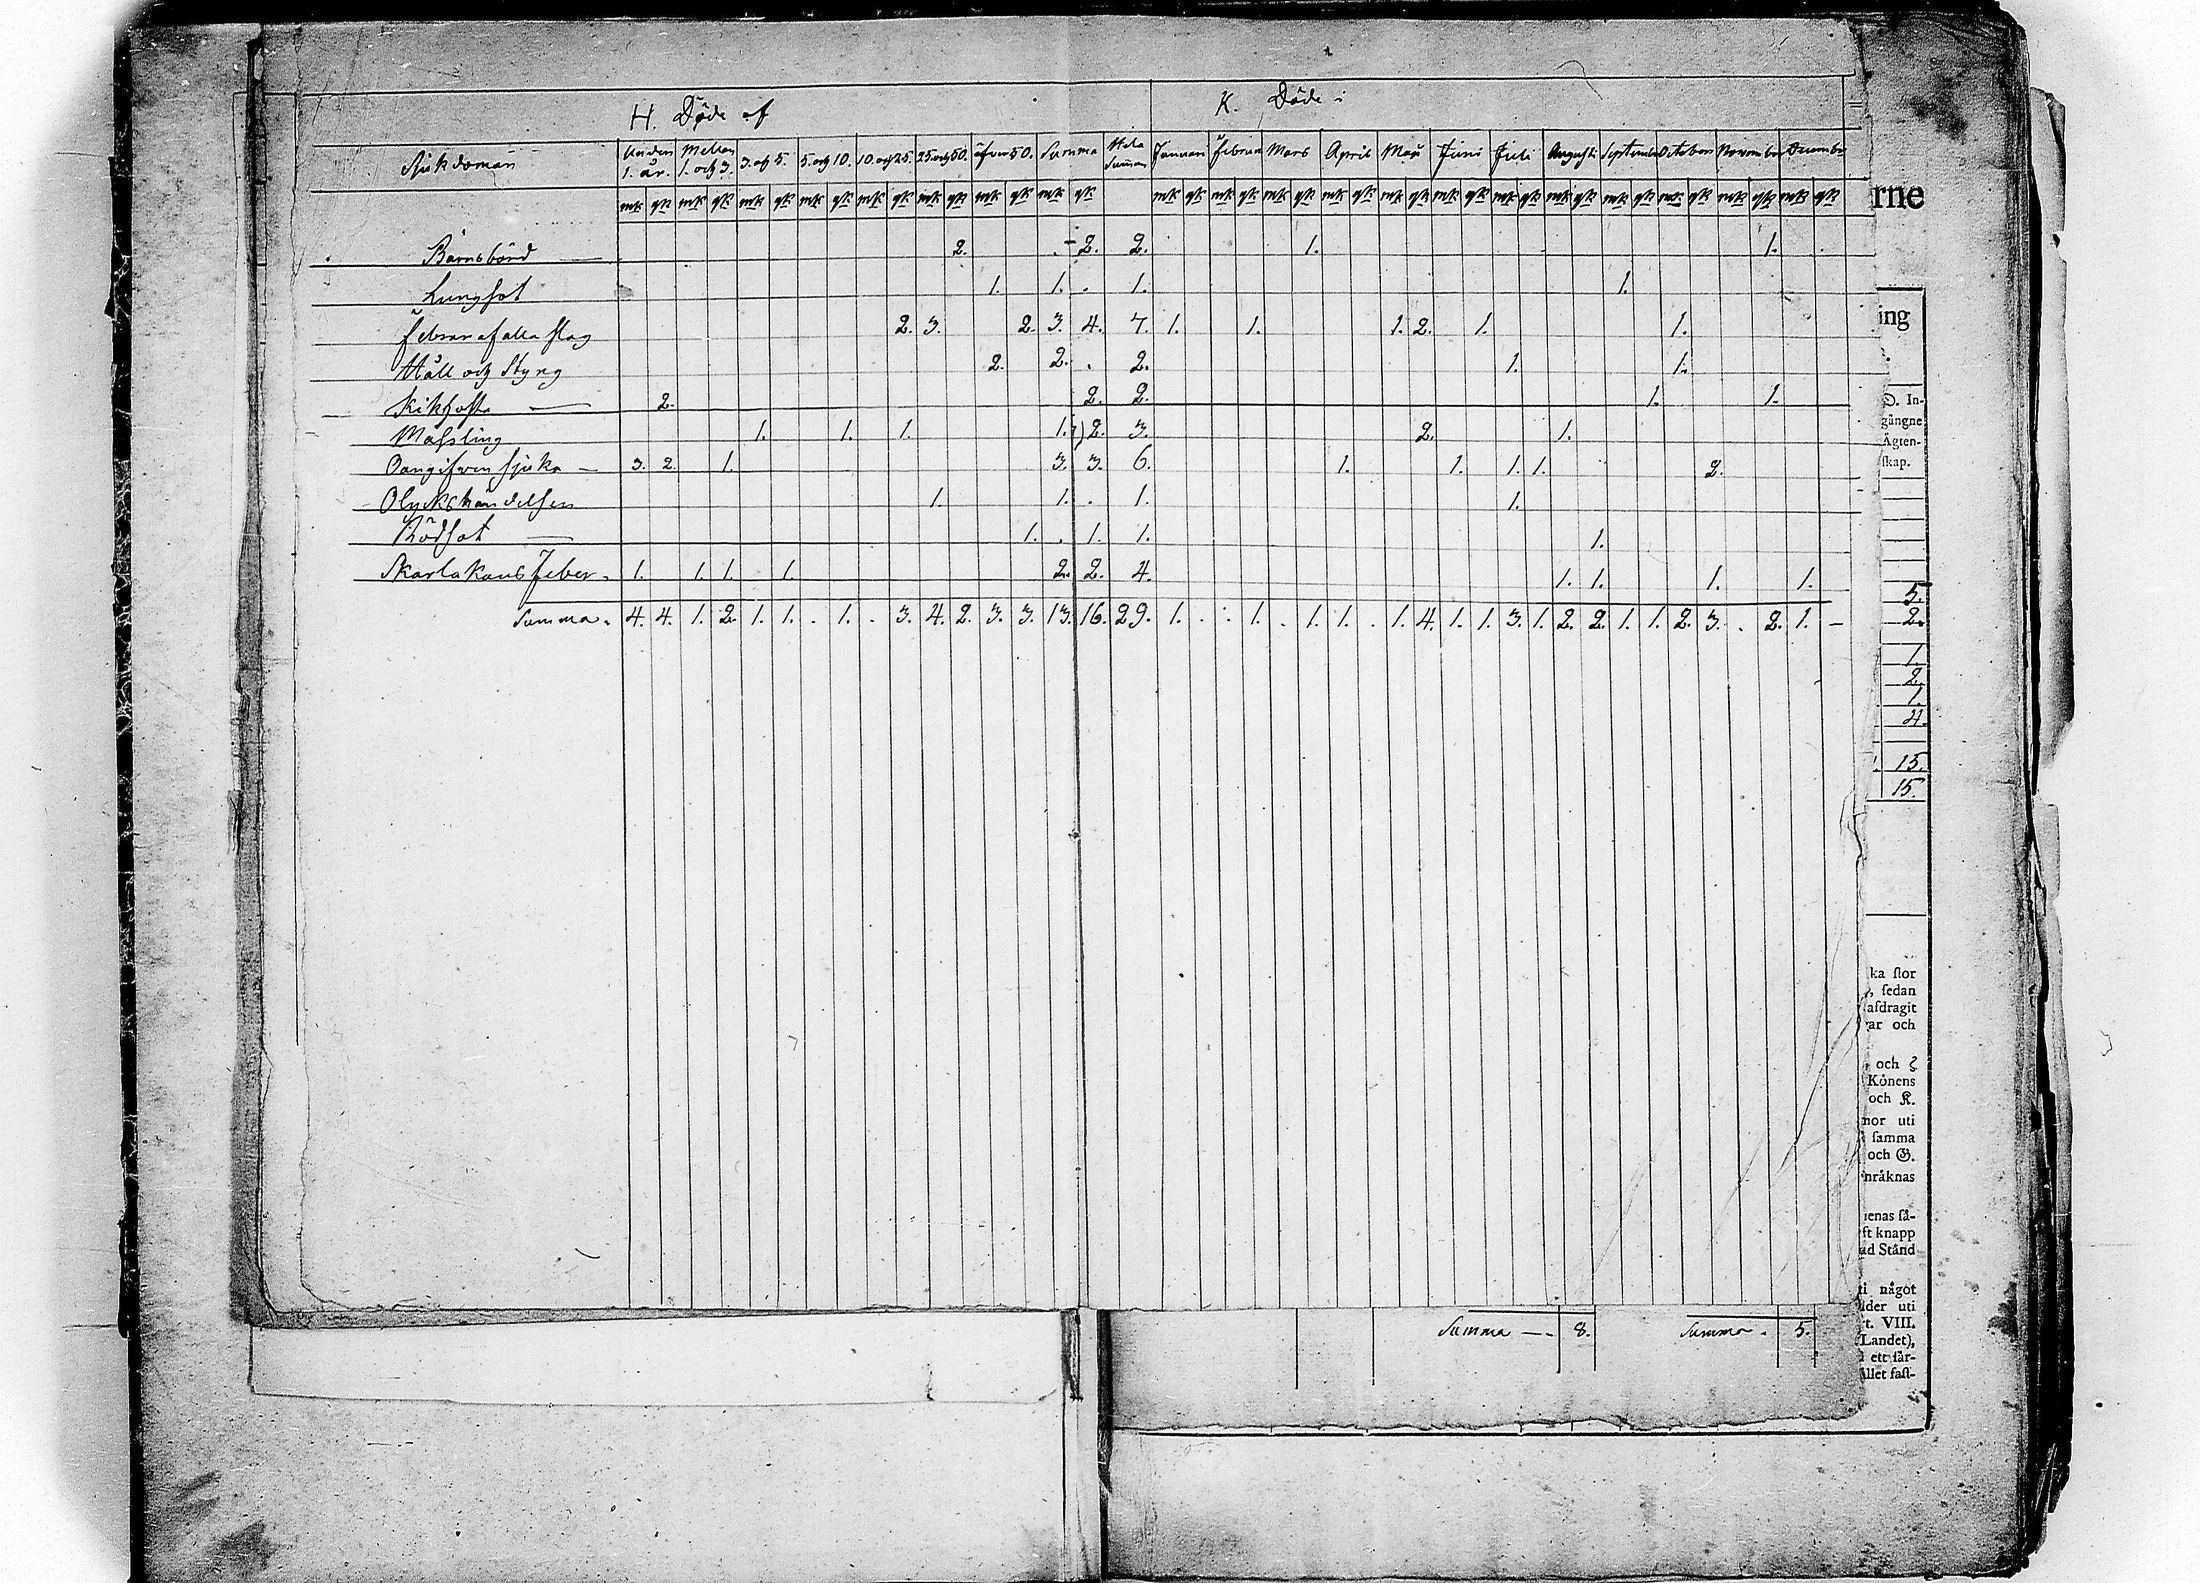 H. Döde af K. Döde i
Sjukdomar Under 1. år. Mellan 1. och 3. 3. och 5. 5. och 10. 10. och 25. 25. och 50. öfver 50. Summa Hela Summan Januari Februari Mars April Maji Juni Juli Augusti September October November December
mk qk mk qk mk qk mk qk mk qk mk qk mk qk mk qk mk qk mk qk mk qk mk qk mk qk mk qk mk qk mk qk mk qk mk qk mk qk mk qk
Barnsbörd — 2. . — 2. 2. 1. 1. .
Lungsot 1. 1. . 1. 1.
Febrar af alla slag 2. 3. 2. 3. 4. 7. 1. 1. 1. 2. 1. 1.
Håll och Styng 2. 2. . 2. 1. 1.
Kikhosta — 2. 2. 2. 1. 1.
Maßling 1. 1. 1. 1. 2. 3. 2. 1.
Oangifven Sjukd — 3. 2. 1. 3. 3. 6. 1. 1. 1. 1. 2.
Olyckshändelsen 1. 1. . 1. 1.
Rödsot — 1. . 1. 1. 1.
Skarlakans Feber. 1. 1. 1. 1. 2. 2. 4. 1. 1. 1. 1.
Summa. 4. 4. 1. 2. 1. 1. . 1. . 3. 4. 2. 3. 3. 13. 16. 29. 1. . . 1. . 1. 1. . 1. 4. 1. 1. 3. 1. 2. 2. 1. 1. 2. 3. . 2. 1. —
Summa — 8. Summa. 5.
rne
ing
D. In-
gångne
Ägten-
skap.
5.
2.
1.
2.
1.
4.
15.
15.
ka ſtor
, ſedan
afdragit
ar och
och
Könens
och K.
nor uti
ſamma
och G.
nråknas
ienas ſå-
ſt knapp
ad Stånd
ti något
lder uti
t. VIII.
Landet),
ett får-
ållet faſt-